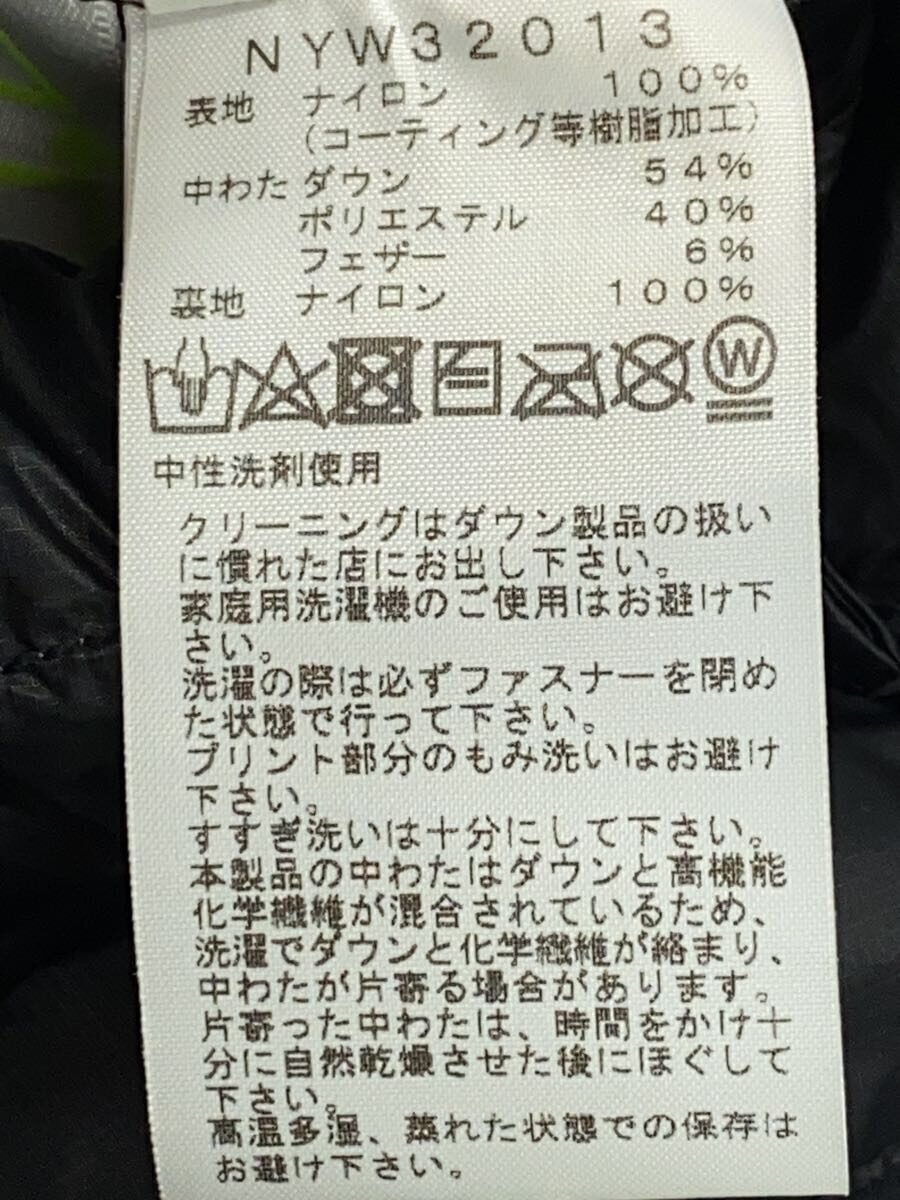 NYW32013
表地 ナイロン 100%
(コーティング等樹脂加工)
中わた ダウン 54%
ポリエステル 40%
フェザー 6%
裏地 ナイロン 100%
W
中性洗剤使用
クリーニングはダウン製品の扱い
に慣れた店にお出し下さい。
家庭用洗濯機のご使用はお避け下
さい。
洗濯の際は必ずファスナーを閉め
た状態で行って下さい。
プリント部分のもみ洗いはお避け
下さい。
すすぎ洗いは十分にして下さい。
本製品の中わたはダウンと高機能
化学繊維が混合されているため、
洗濯でダウンと化学繊維が絡まり、
中わたが片寄る場合があります。
片寄った中わたは、時間をかけ十
分に自然乾燥させた後にほぐして
下さい。
高温多湿、蒸れた状態での保存は
お避け下さい。